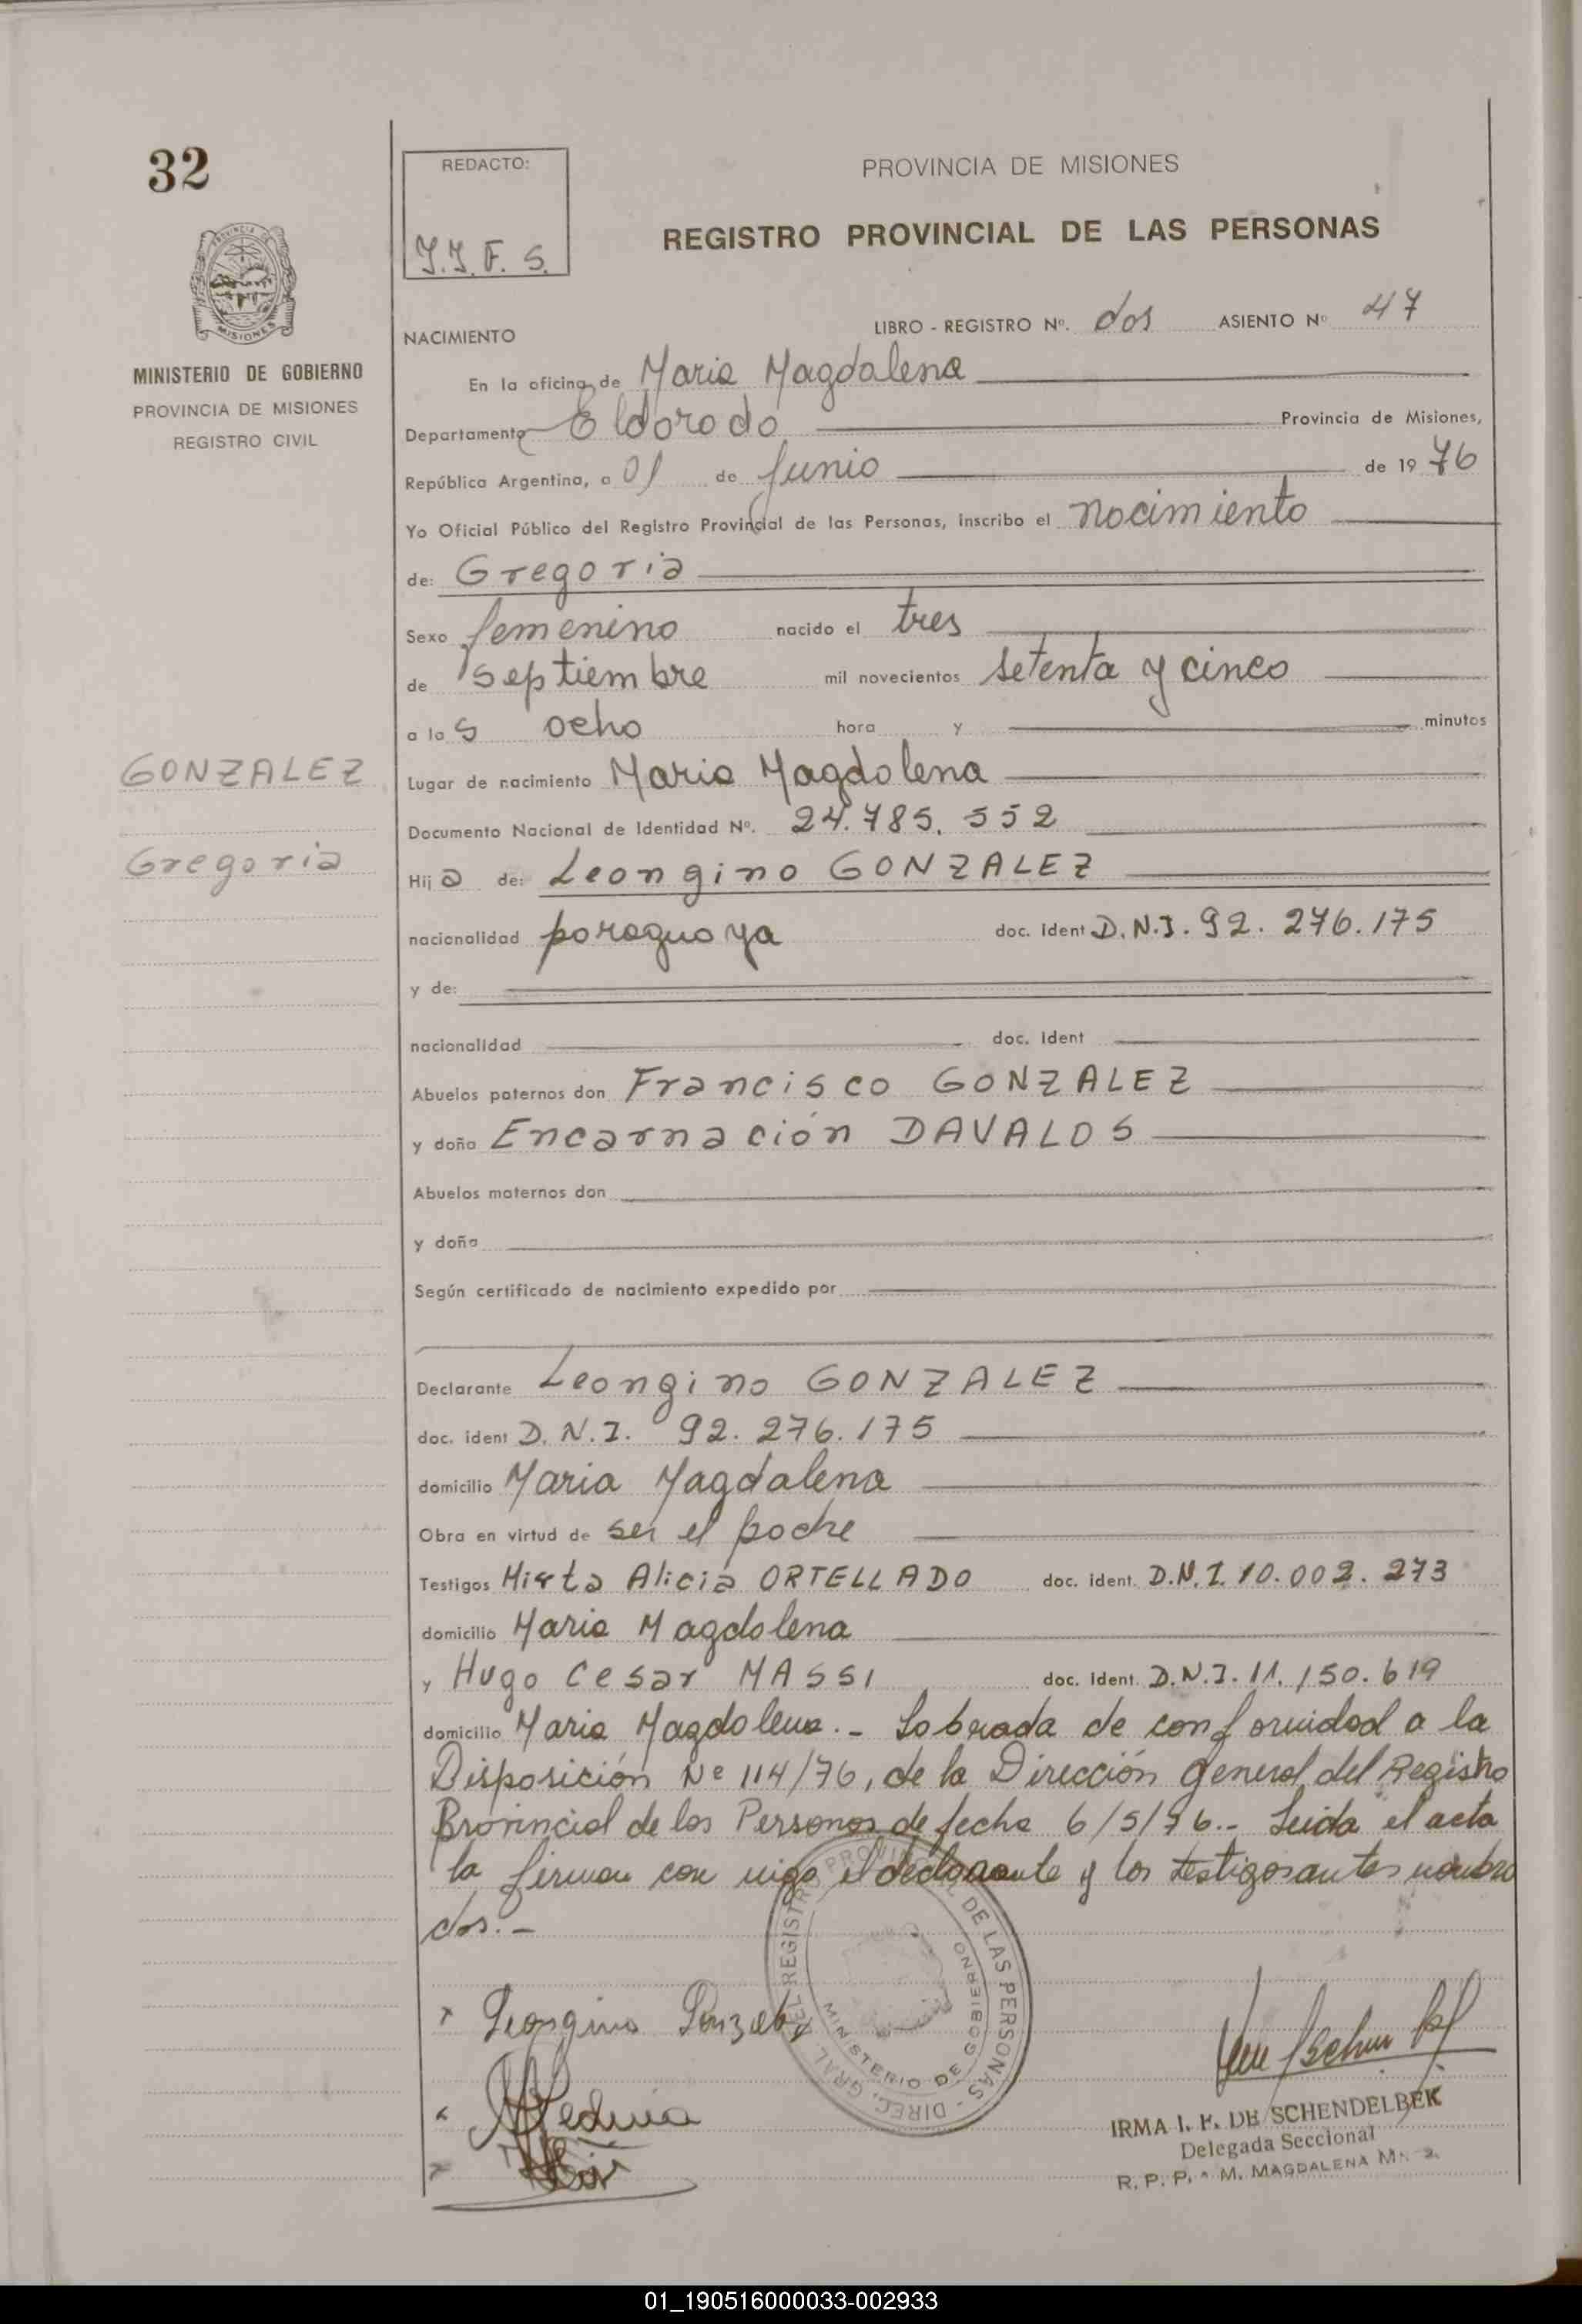 32
REDACTO:
J.J.F.S.
PROVINCIA DE MISIONES
REGISTRO PROVINCIAL DE LAS PERSONAS
PROVINCIA DE
MISIONES
MINISTERIO DE GOBIERNO
PROVINCIA DE MISIONES
REGISTRO CIVIL
NACIMIENTO
LIBRO - REGISTRO Nº. dos ASIENTO Nº 47
En la oficina de Maria Magdalena
Departamento Eldorado Provincia de Misiones,
República Argentina, a 01 de Junio de 19 76
Yo Oficial Público del Registro Provincial de las Personas, inscribo el nacimiento
de: Gregoria
Sexo femenino nacido el tres
de septiembre mil novecientos setenta y cinco
a las ocho hora y minutos
GONZALEZ
Lugar de nacimiento Maria Magdalena
Documento Nacional de Identidad Nº. 24.785.552
Gregoria
Hija de: Leongino GONZALEZ
nacionalidad paraguaya doc. Ident D.N.I. 92.276.175
y de:
nacionalidad doc. Ident
Abuelos paternos don Francisco GONZALEZ
y doña Encarnación DAVALOS
Abuelos maternos don
y doña
Según certificado de nacimiento expedido por
Declarante Leongino GONZALEZ
doc. ident D.N.I. 92.276.175
domicilio Maria Magdalena
Obra en virtud de ser el padre
Testigos Mirta Alicia ORTELLADO doc. ident. D.N.I. 10.002.273
domicilio Maria Magdalena
y Hugo Cesar MASSI doc. Ident. D.N.I. 11.150.619
domicilio Maria Magdalena.- Labrada de conformidad a la
Disposición Nº 114/76, de la Dirección General del Registro
Provincial de las Personas de fecha 6/5/76.- Leida el acta
la firman con migo el declarante y los testigos antes nombra
dos.-
DIREC. GRAL. DEL REGISTRO PROVINCIAL DE LAS PERSONAS -
MINISTERIO DE GOBIERNO
Leongino Gonzalez
IRMA I. F. DE SCHENDELBEK
Delegada Seccional
R. P. P. - M. MAGDALENA
01_190516000033-002933